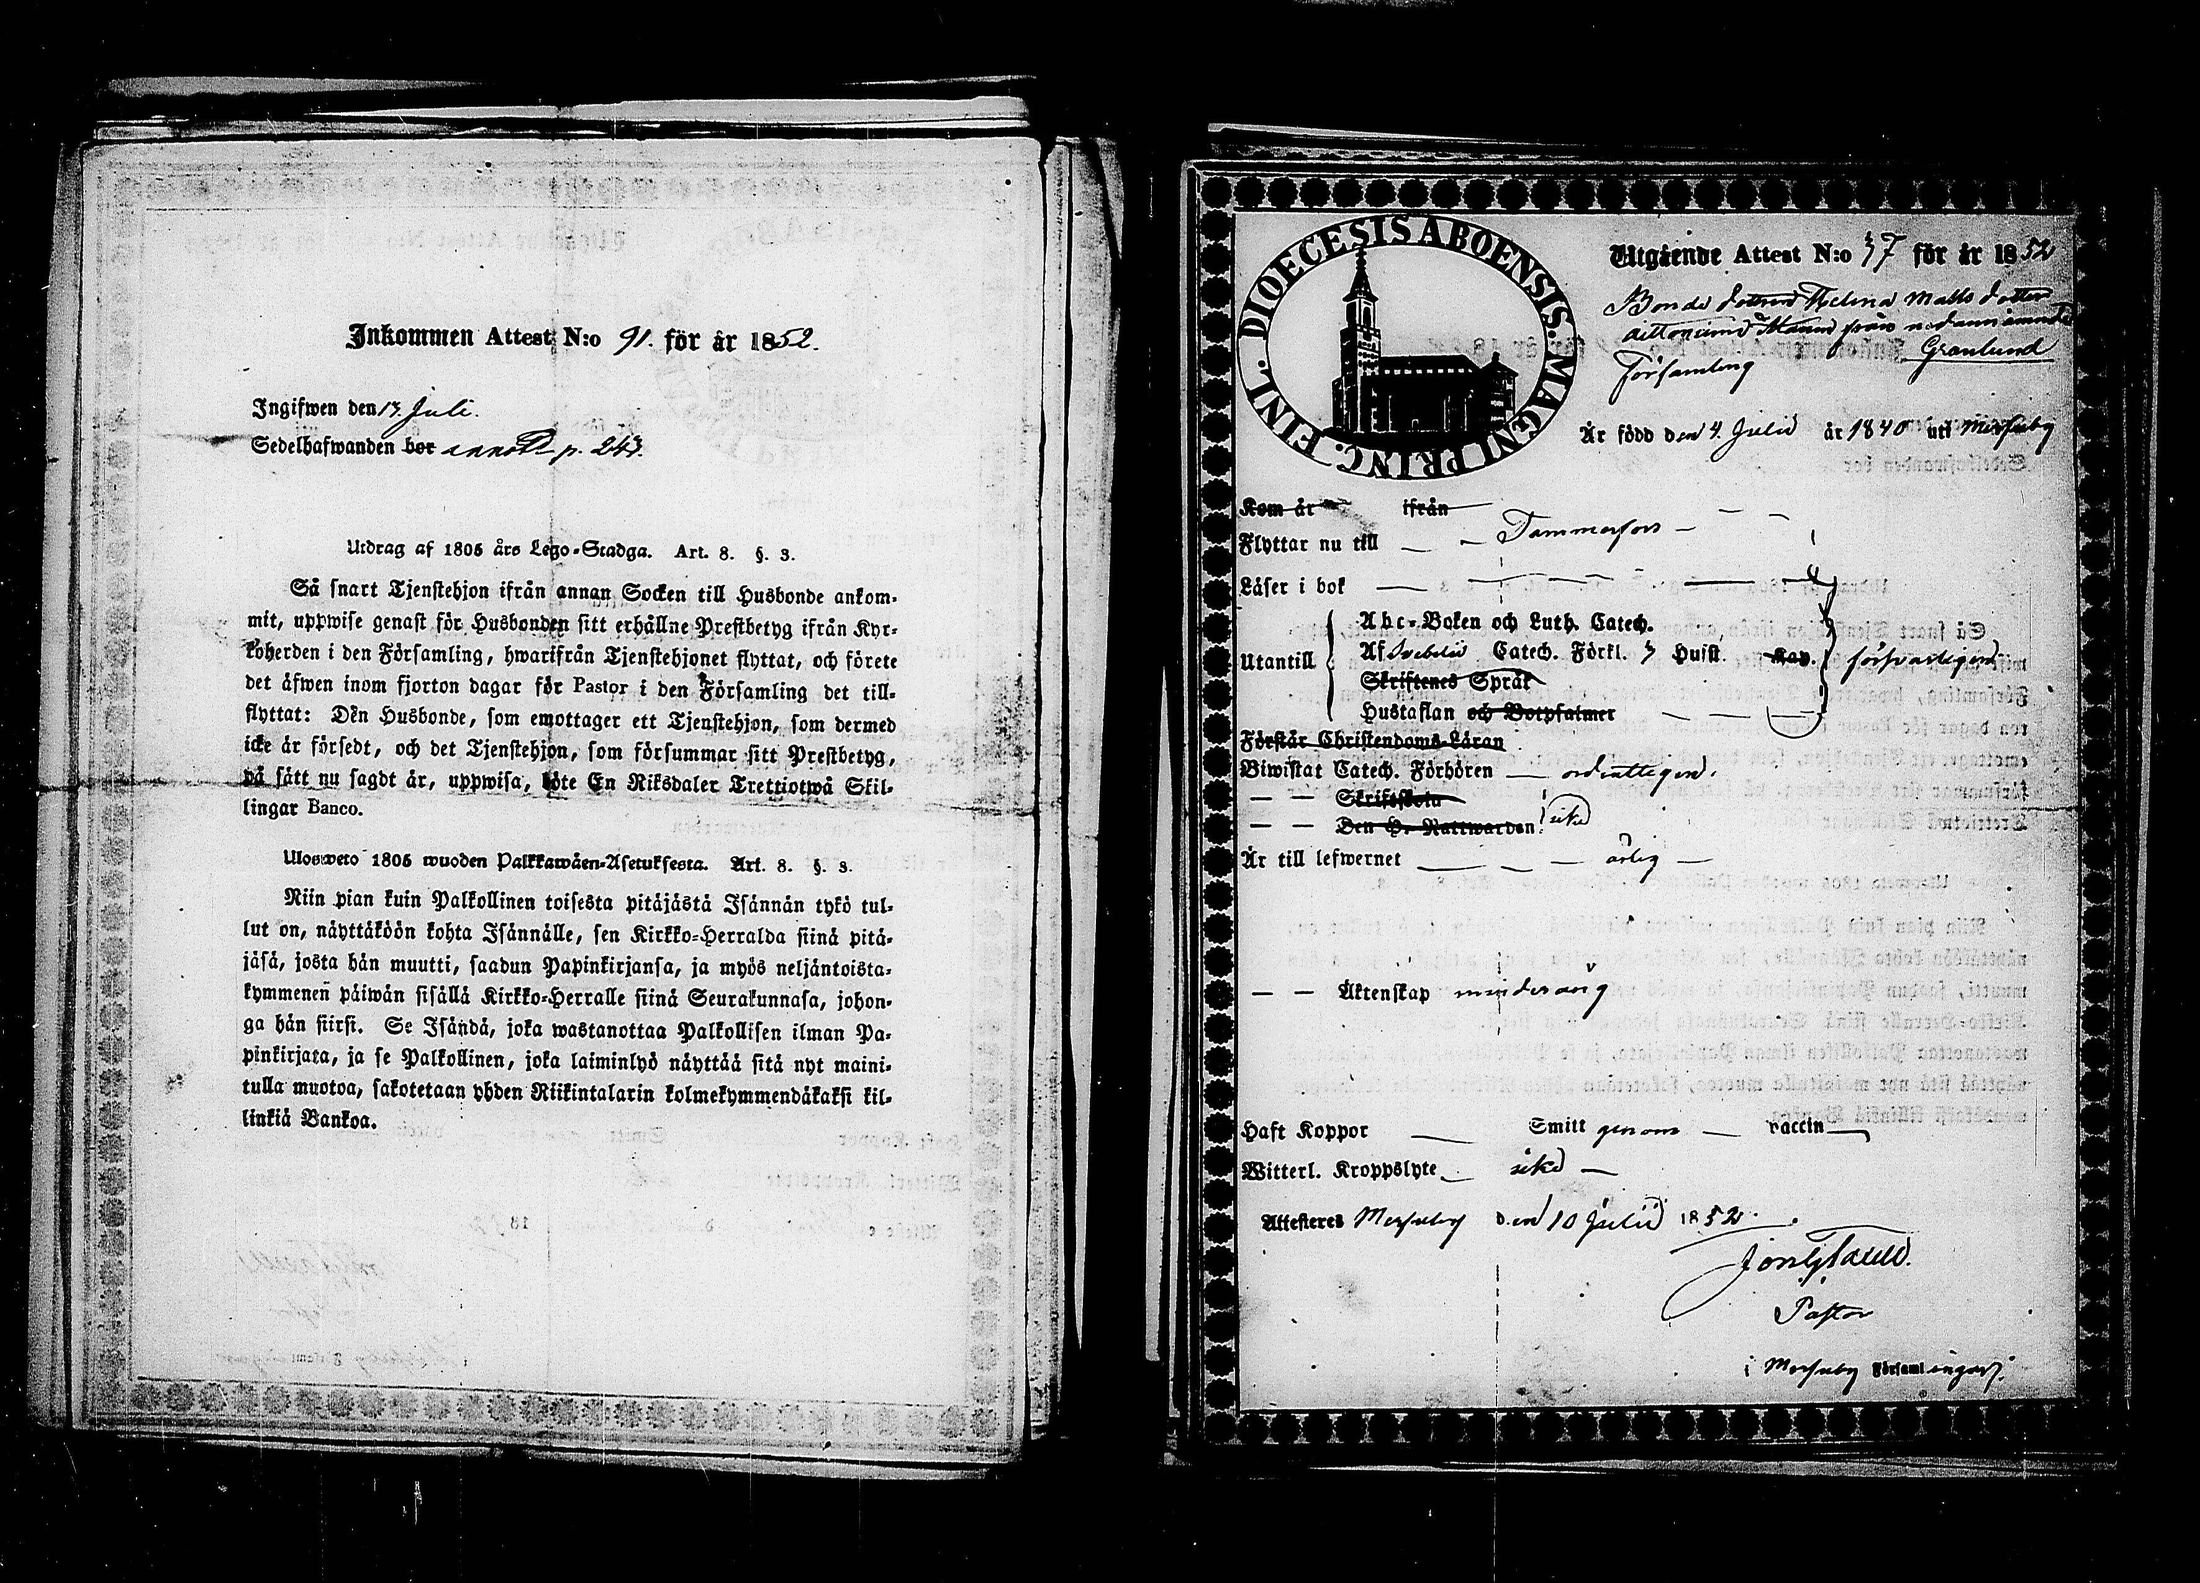 Inkommen Attest N:o 91. för år 1852.
Ingifwen den 13 Juli.
Sedelhafwanden bor annot. p. 243.
Utdrag af 1805 års Lego-Stadga. Art. 8. §. 3.
Så snart Tjenstehjon ifrån annan Socken till Husbonde ankom-
mit, uppwise genast för Husbonden sitt erhållne Prestbetyg ifrån Kyr-
koherden i den Församling, hwarifrån Tjenstehjonet flyttat, och förete
det äfwen inom fjorton dagar för Pastor i den Församling det till-
flyttat: Den Husbonde, som emottager ett Tjenstehjon, som dermed
icke är försedt, och det Tjenstehjon, som försummar sitt Prestbetyg,
på sätt nu sagdt är, uppwisa, böte En Riksdaler Trettiotwå Skil-
lingar Banco.
Ulosweto 1805 wuoden Palkkawäen-Asetuksesta. Art. 8. §. 3.
Niin pian kuin Palkollinen toisesta pitäjästä Isännän tykö tul-
lut on, näyttäköön kohta Isännälle, sen Kirkko-Herralda siinä pitä-
jäsä, josta hän muutti, saadun Papinkirjansa, ja myös neljäntoista-
kymmenen päiwän sisällä Kirkko-Herralle siinä Seurakunnasa, johon-
ga hän siirsi. Se Isändä, joka wastanottaa Palkollisen ilman Pa-
pinkirjata, ja se Palkollinen, joka laiminlyö näyttää sitä nyt maini-
tulla muotoa, sakotetaan yhden Riikintalarin kolmekymmendäkaksi kil-
linkiä Bankoa.
DIOECESIS ABOENSIS. MAGNI PRINC. FINL.
Utgående Attest N:o 37 för år 1852
Bonde dottren Helena Matts dotter
från nedannämnde
Granlund
Församling
Är född den 4. Julii år 1840 uti
Kom år ifrån
Flyttar nu till — — Tammerfors — — —
Läser i bok
Abc-Boken och Luth. Catech.
Utantill Af Svebelii Catech. Förkl. 3 Husst. Kap. försvarligen
Skriftenes Språk
Hustaflan och Botpsalmer
Förstår Christendoms-Läran
Biwistat Catech. Förhören — ordentligen.
— — Skriftskola
— — Den H. Nattwarden icke
Är till lefwernet — — — ärlig —
— — Äktenskap minderårig
Haft Koppor — Smitt genom — vaccin —
Witterl. Kroppslyte — icke —
Attesteres den 10 Julii 1852.
Pastor
i Församlingar